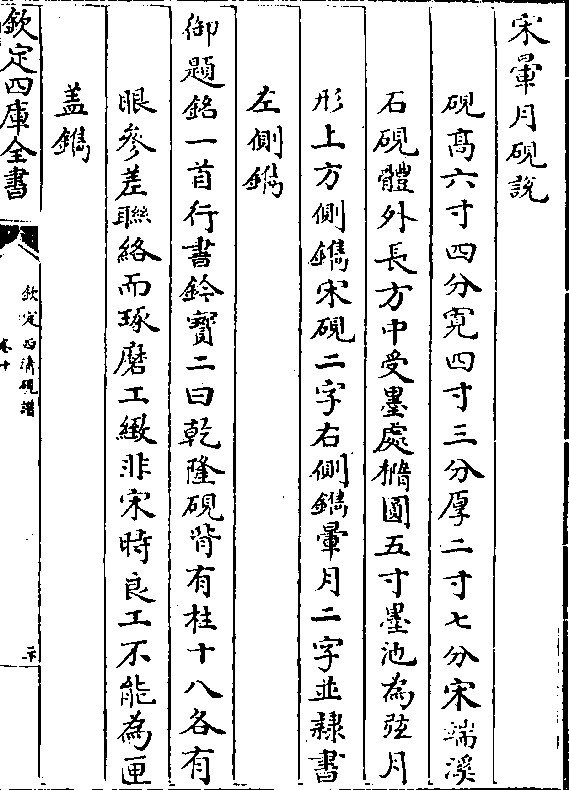 宋暈月硯說
硯高六寸四分寛四寸三分厚二寸七分宋端溪
石硯體外長方中受墨處橢圓五寸墨池為弦月
形上方側鐫宋硯二字右側鐫暈月二字並隸書
左側鐫
御題銘一首行書鈐寶二曰乾隆硯背有柱十八各有
眼參差聯絡而琢磨工緻非宋時良工不能為匣
盖鐫
欽定四庫全書
欽定西清硯譜
卷十